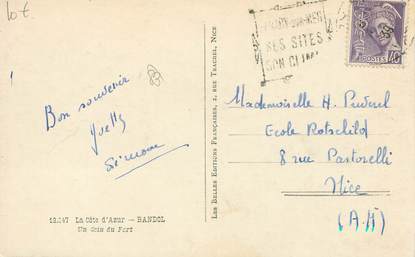 10€
SES SITES
SON CLIMAT
POSTES
40
Bon souvenir
Yvette
Simone
LES BELLES EDITIONS FRANÇAISES, 2, RUE TRACHEL, NICE
Mademoiselle H.
Ecole Rotschild
8 rue Pastorelli
Nice
(A.M)
12.247 La Côte d'Azur — BANDOL
Un Coin du Port